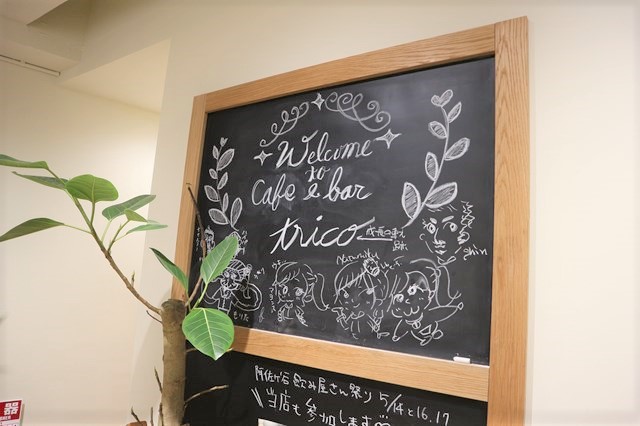 Welcome
to
Cafe & bar
trico
Shin
Natsumiku
もりた
阿佐ヶ谷飲み屋さん祭り 5/14と16.17
\\当店も参加します